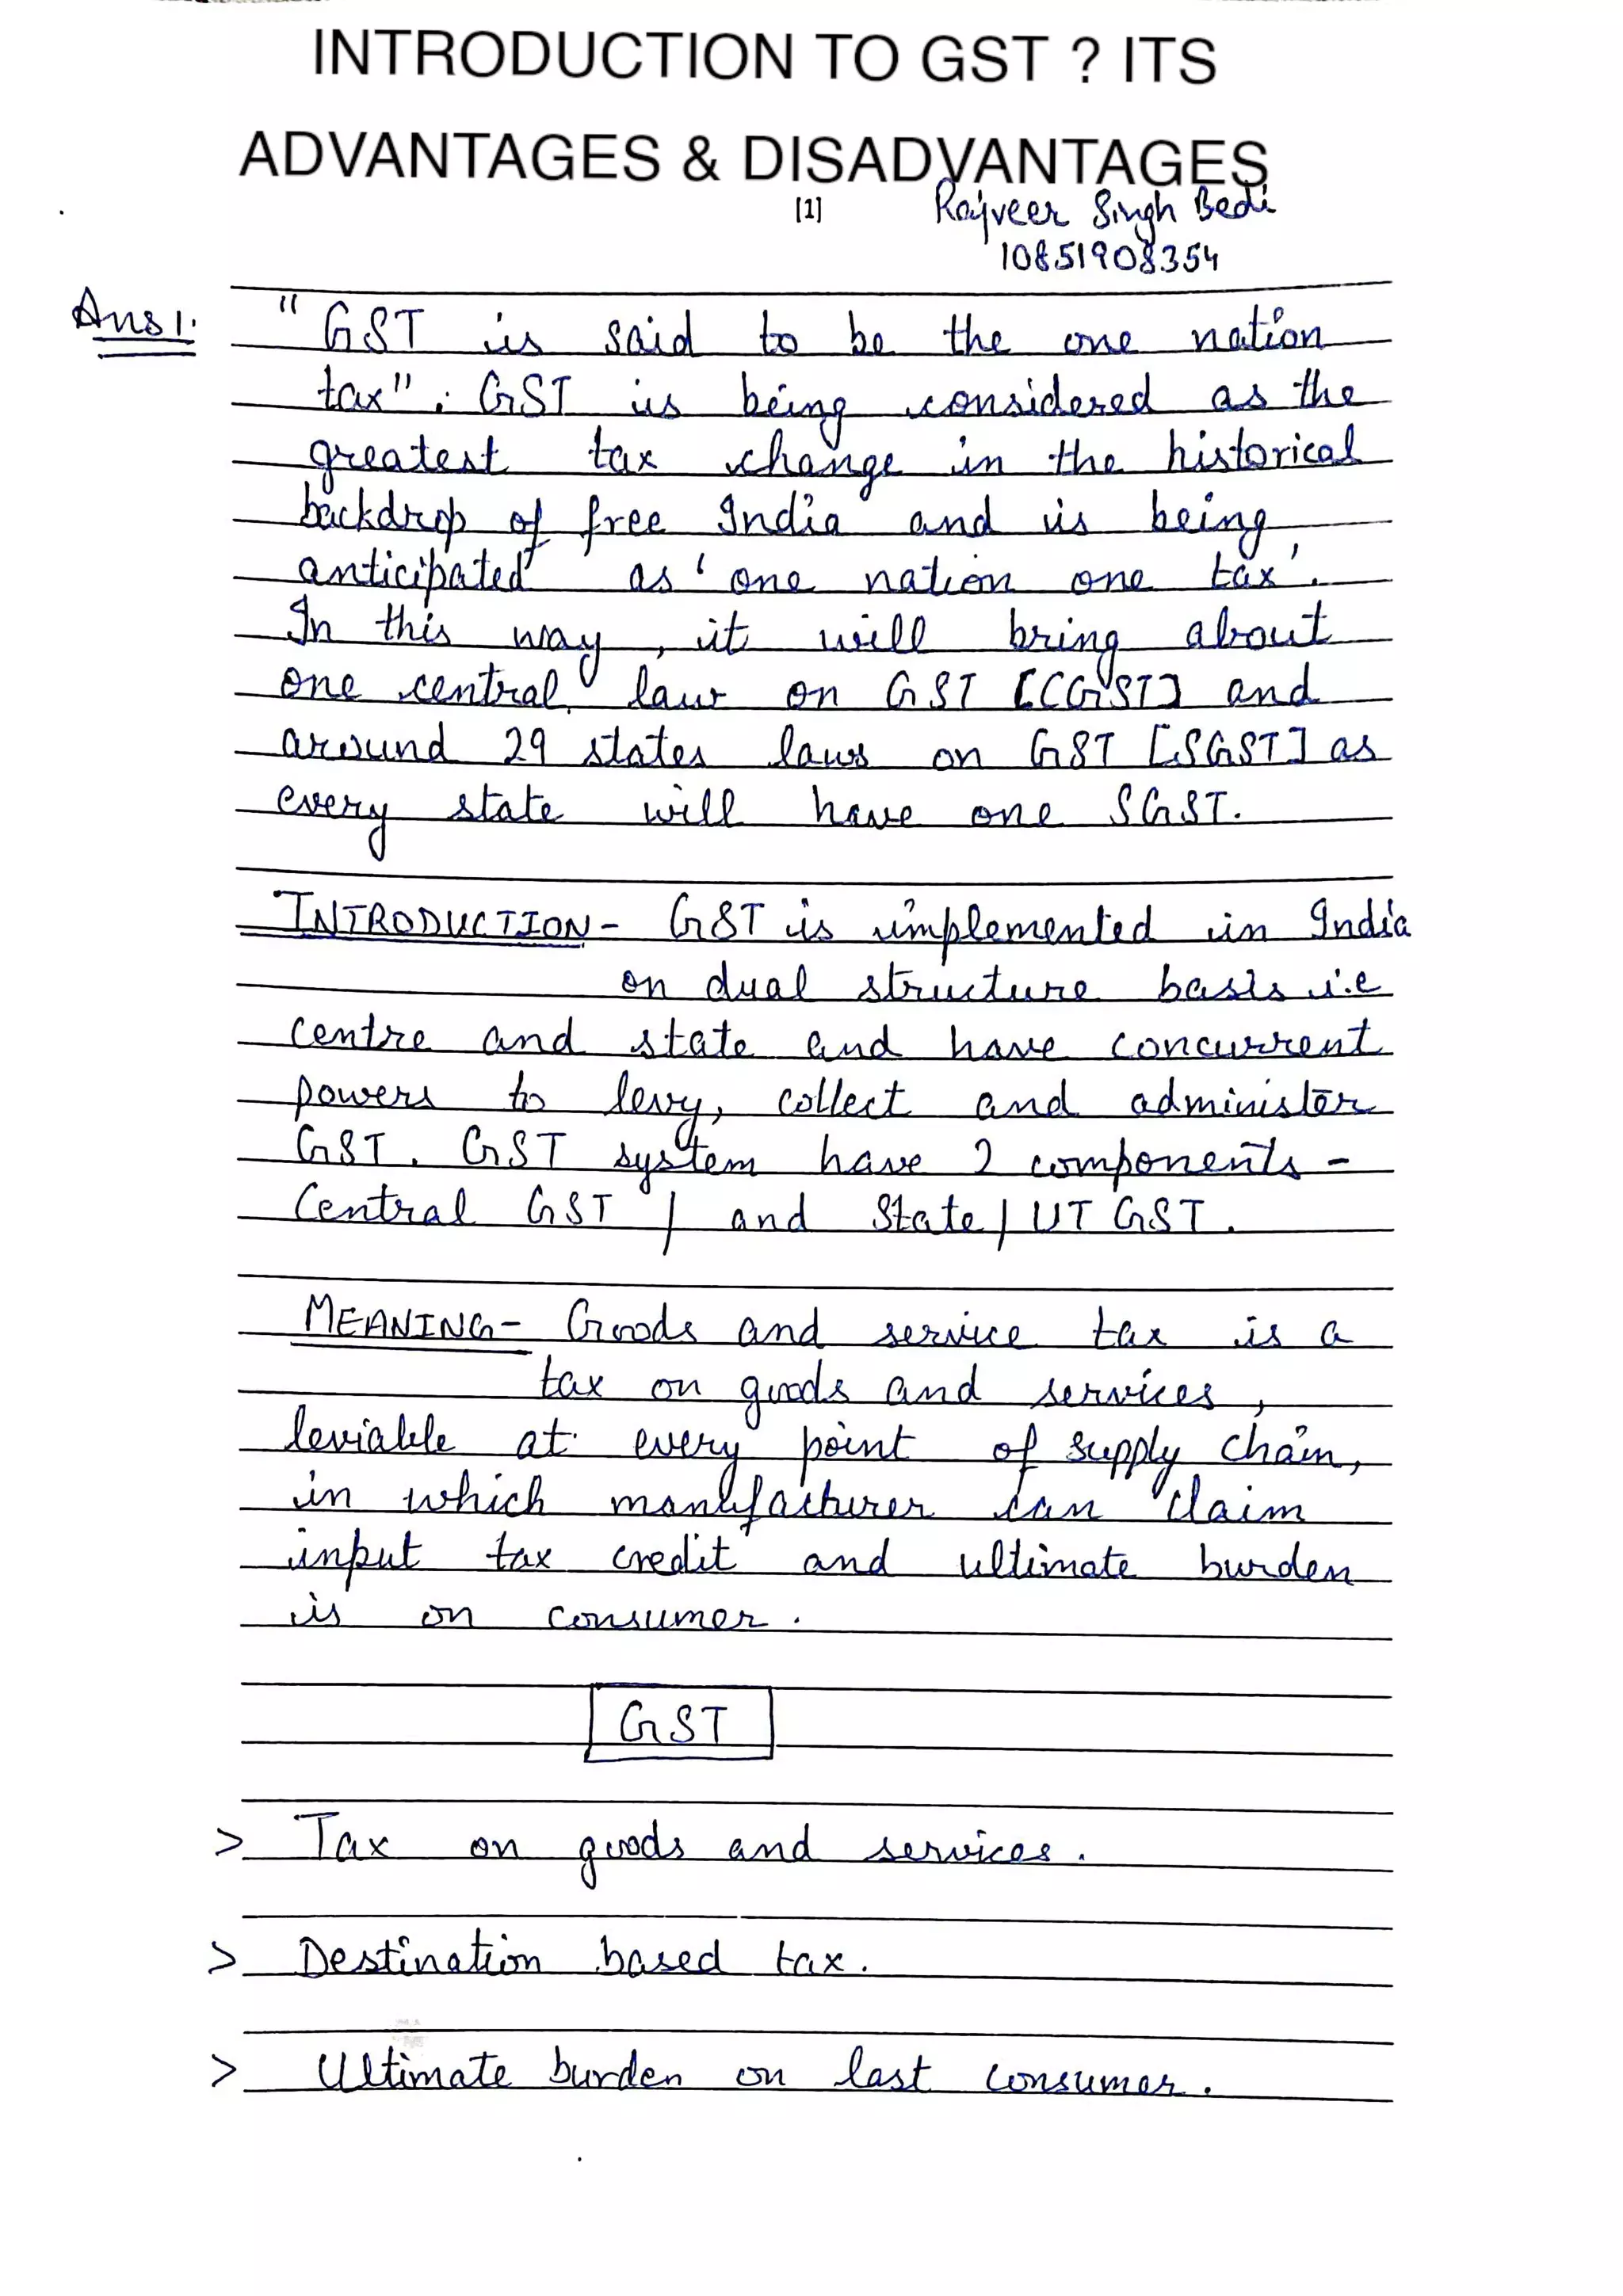 INTRODUCTION TO GST ? ITS
ADVANTAGES & DISADVANTAGES
[1] Rajveer Singh Bedi
10851908354
Ans 1. "GST is said to be the one nation
tax". GST is being considered as the
greatest tax change in the historical
backdrop of free India and is being
anticipated as 'one nation one tax'.
In this way, it will bring about
one central law on GST [CGST] and
around 29 states laws on GST [SGST] as
every state will have one SGST.
INTRODUCTION - GST is implemented in India
on dual structure basis i.e
centre and state and have concurrent
powers to levy, collect and administer
GST. GST system have 2 components -
Central GST / and State / UT GST.
MEANING - Goods and service tax is a
tax on goods and services,
leviable at every point of supply chain,
in which manufacturer can claim
input tax credit and ultimate burden
is on consumer.
GST
> Tax on goods and services.
> Destination based tax.
> Ultimate burden on last consumer.